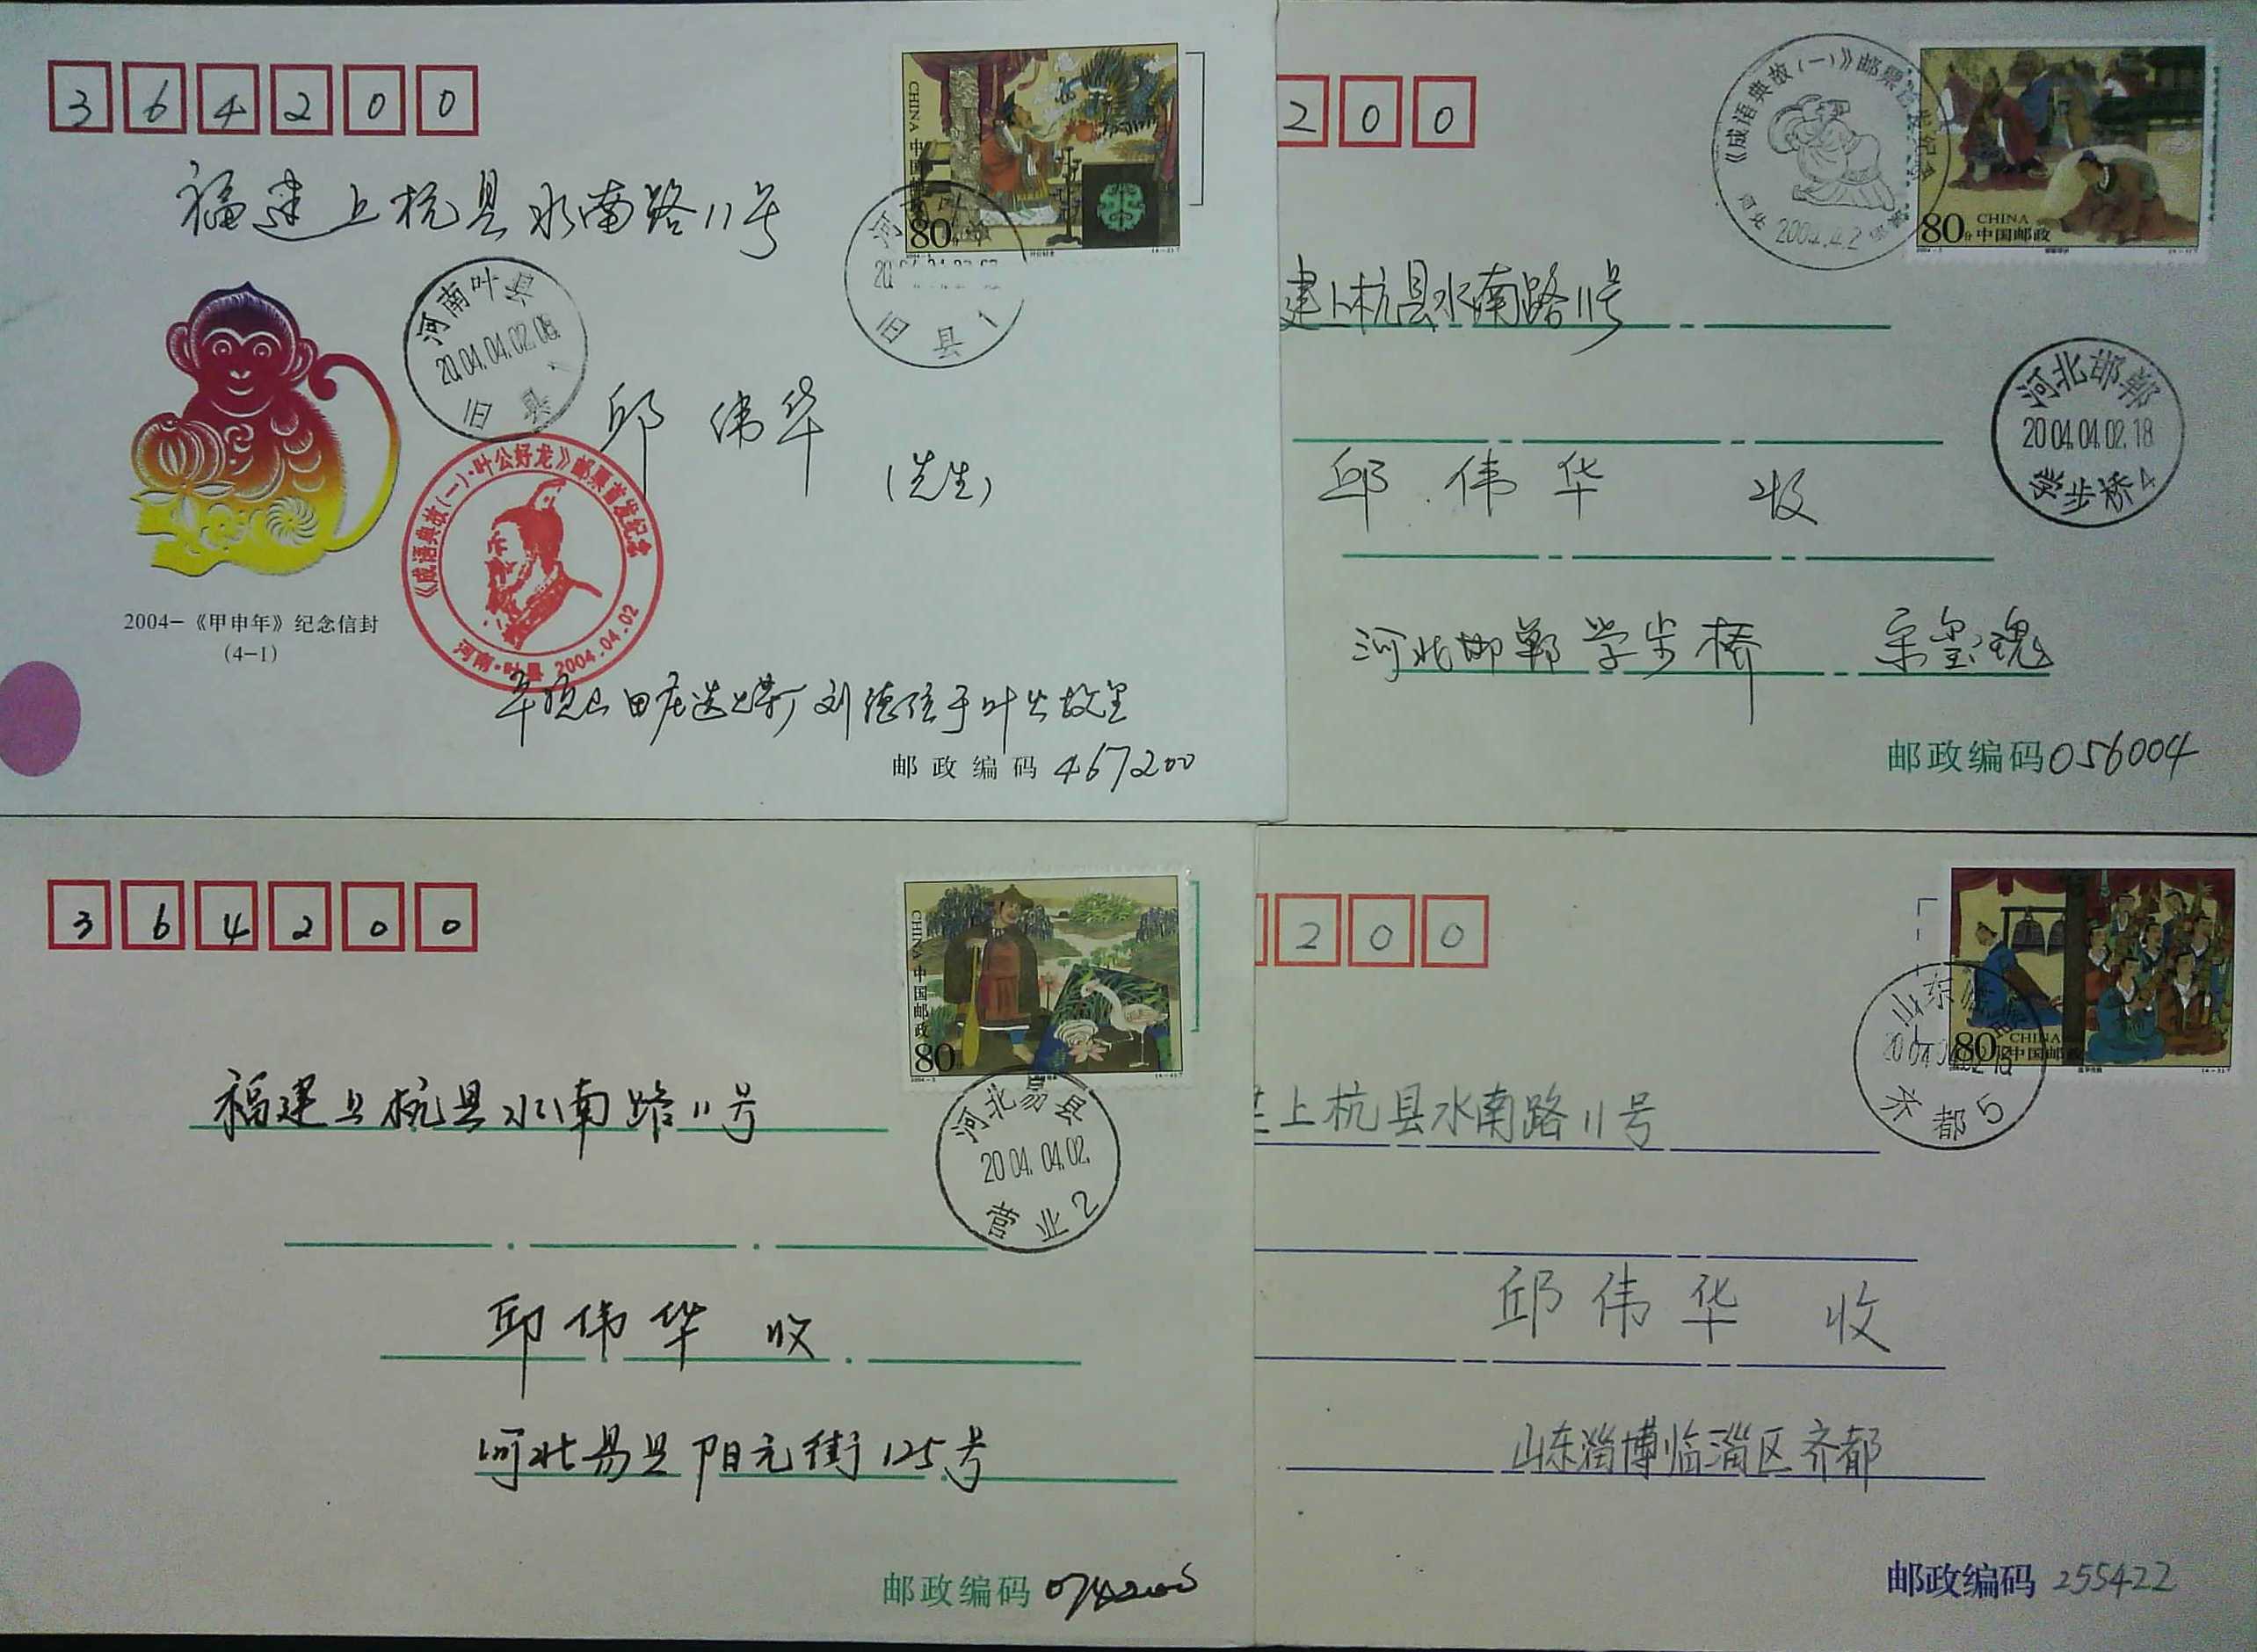 364200
CHINA 中国邮政
80分
福建上杭县水南路11号
河南叶县
2004.04.02.08
旧县
旧县1
邱伟华
(先生)
《成语典故(一)·叶公好龙》邮票首发纪念
河南·叶县 2004.04.02
2004-《甲申年》纪念信封
(4-1)
刘德信于叶公故里
邮政编码 467200
200
《成语典故(一)》邮票首发纪念
河北 邯郸
2004.4.2
80分 CHINA 中国邮政
建上杭县水南路11号
河北邯郸
2004.04.02.18
学步桥4
邱伟华 收
河北邯郸学步桥
邮政编码 056004
364200
CHINA 中国邮政
80分
福建上杭县水南路11号
河北易县
2004.04.02.
营业2
邱伟华 收
河北易县阳元街125号
邮政编码 074200
200
80分 CHINA 中国邮政
山东临淄
2004.04.02.18
齐都5
上杭县水南路11号
邱伟华 收
山东淄博临淄区齐都
邮政编码 255422